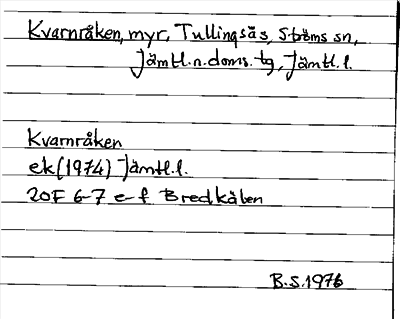 Kvarnråken, myr, Tullingsås, Ströms sn,
Jämtl.n.doms.tg, Jämtl.l.
Kvarnråken
ek (1974) Jämtl.l.
20F 6-7 e-f Bredkälen
B.S.1976